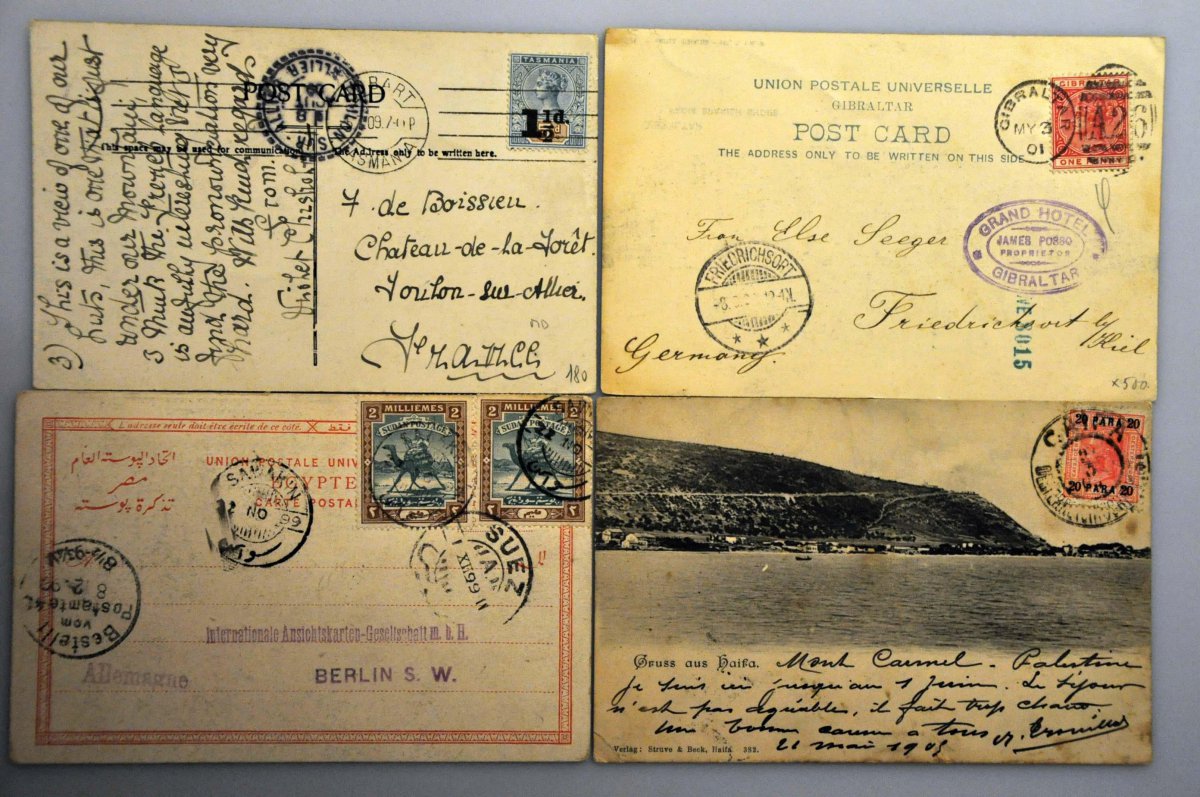 POST CARD
This space may be used for communication
The Address only to be written here.
HOBART
TASMANIA
TASMANIA
1½d.
ALLIER
7. de Boissieu.
Chateau-de-la-Forêt.
Toulon-sur-Allier.
France
180
3) This is a view of one of our
huts, this is one that is just
under our mountain
I think the French language
is awfully
and the pronounciation very
hard. With kind regards
from
UNION POSTALE UNIVERSELLE
GIBRALTAR
POST CARD
THE ADDRESS ONLY TO BE WRITTEN ON THIS SIDE
GIBRALTAR
MY 3
01
A26
GIBRALTAR
GRAND HOTEL
JAMES POSSO
PROPRIETOR
GIBRALTAR
Frau Else Seeger
FRIEDRICHSORT
Friedrichsort b/
Kiel
Germany.
3015
x500
L'adresse seule doit être écrite de ce côté.
فقط
اتحاد البوستة العام
مصر
تذكرة بوستة
UNION POSTALE UNIV
EGYPTE
CARTE POSTA
2 MILLIEMES 2
SUDAN POSTAGE
2 MILLIEMES 2
SUDAN POSTAGE
SUEZ
11 XII 99
Bestellt
vom
Postamte
Internationale Ansichtskarten-Gesellschaft m. b. H.
BERLIN S. W.
Allemagne
20 PARA 20
20 PARA 20
Gruss aus Haifa. Mont Carmel - Palestine
Je suis ici jusqu'au 1 Juin. Le séjour
n'est pas agréable, il fait trop chaud.
Une bonne à tous
21 mai 1905
Verlag: Struve & Beck, Haifa. 383.